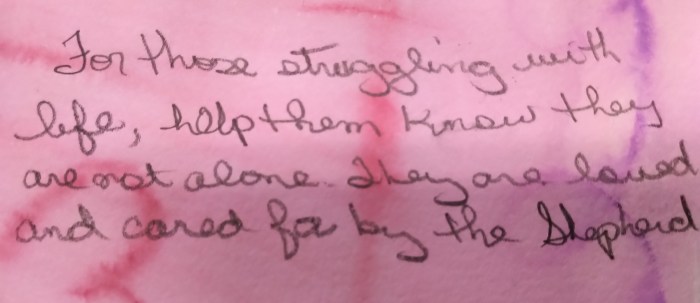 For those struggling with
life, help them know they
are not alone. They are loved
and cared for by the Shepherd